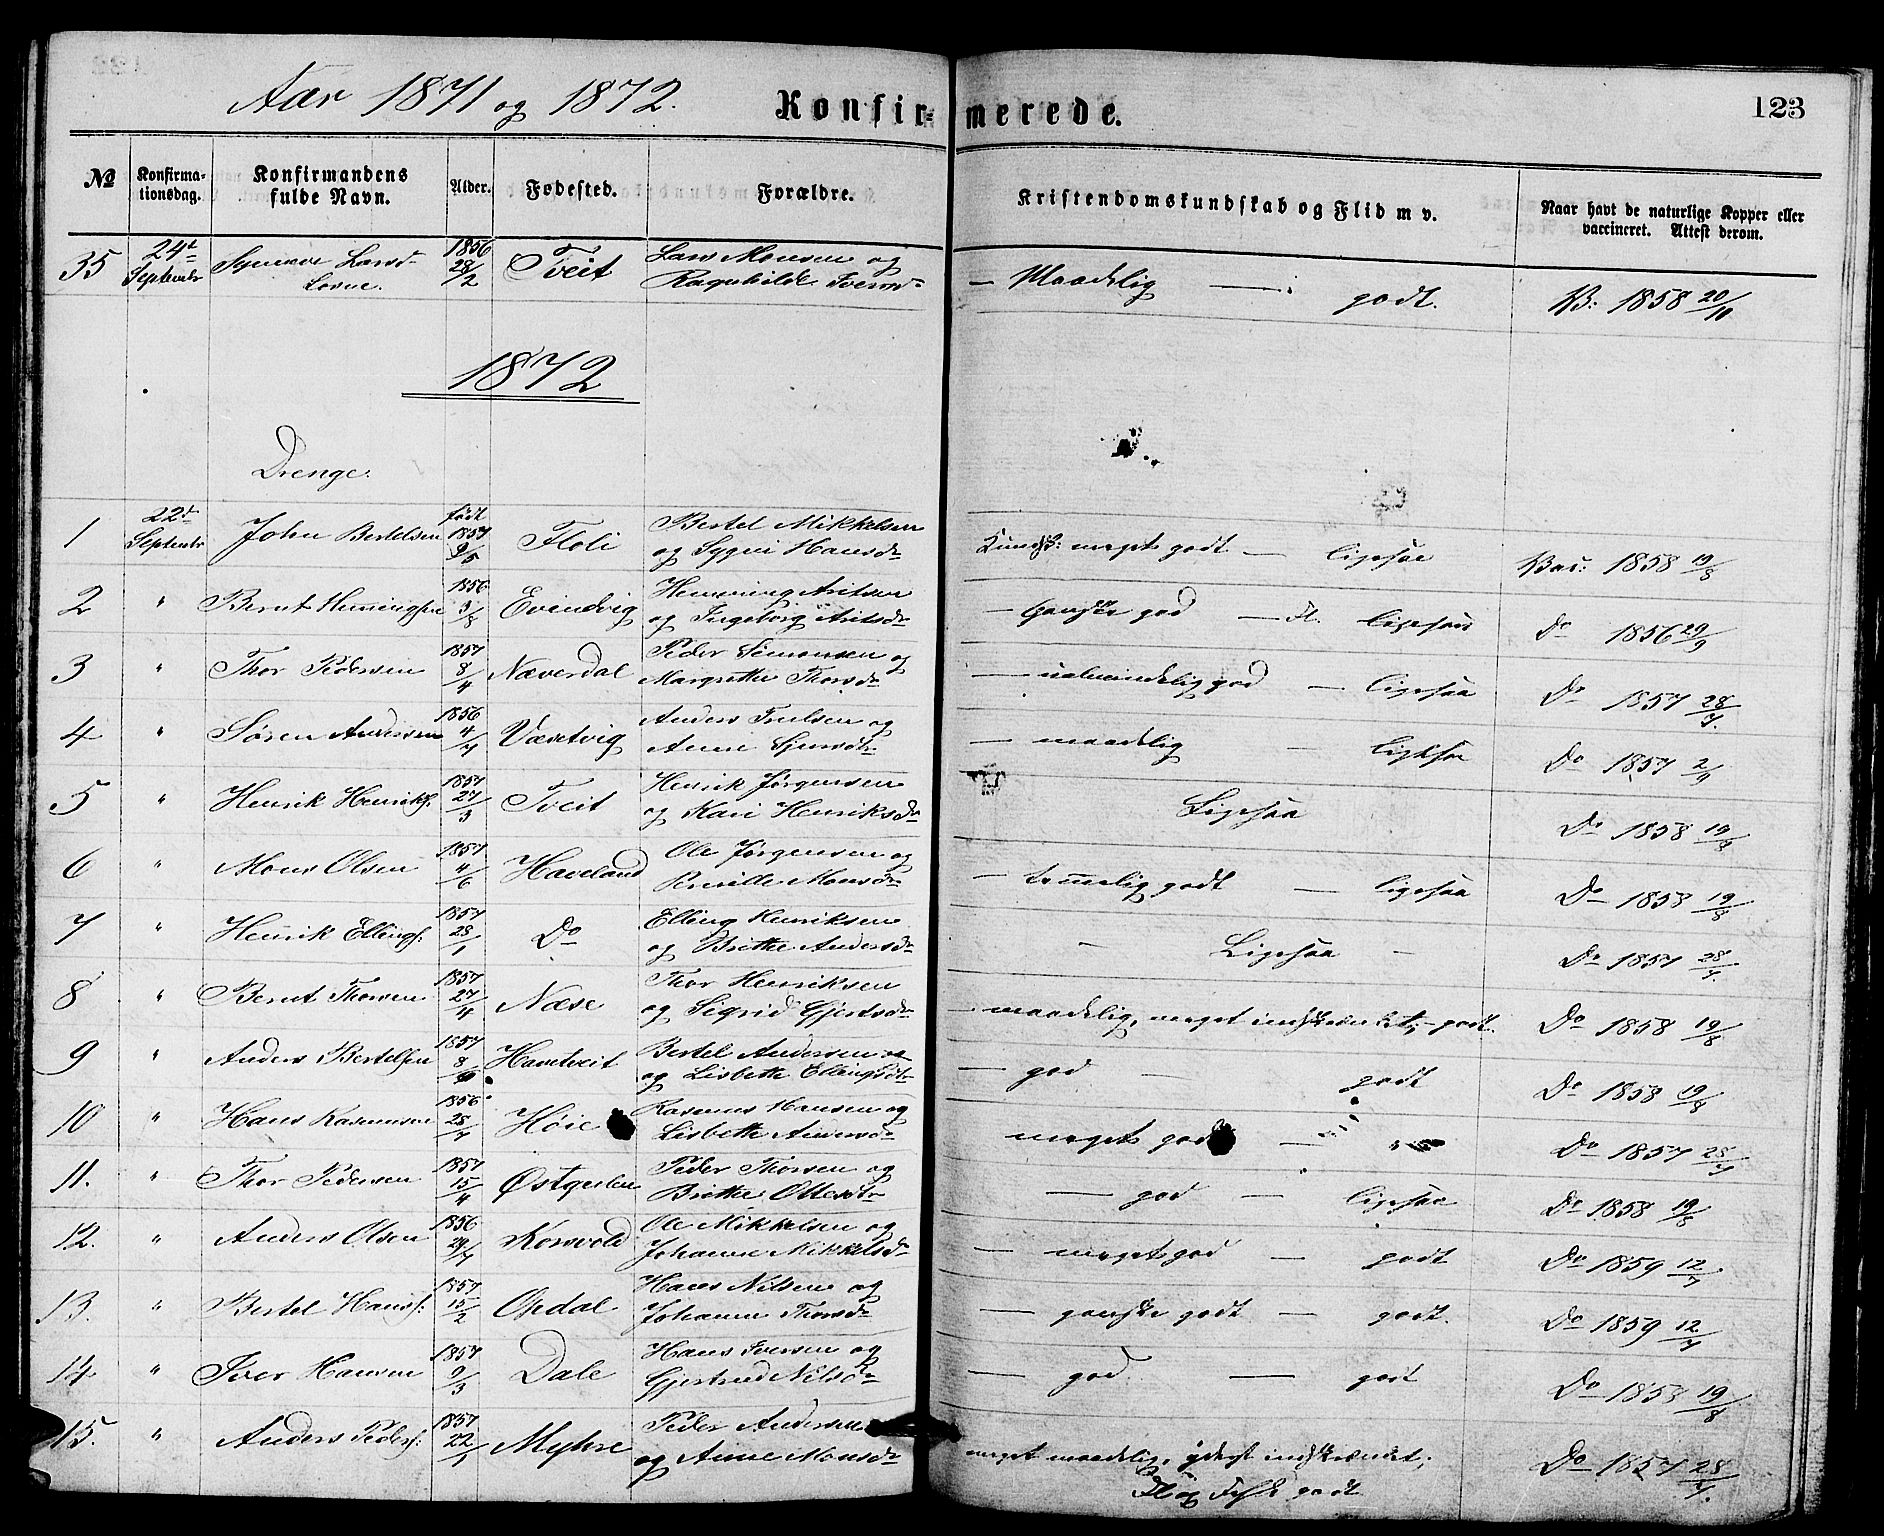 Aar 1871 og 1872.
Konfirmerede.
123
No
Konfirmationsdag.
Konfirmandens fulde Navn.
Alder.
Fødested.
Forældre.
Kristendomskundskab og Flid m v.
Naar havt de naturlige Kopper eller vaccineret. Attest derom.
35 24de Septembr Synneve Larsdr 1856 28/2 Tveit Lars Monsen og Ragnhilde Iversdr — Maadelig — godt. V: 1858 20/10
1872
Drenge.
1 22de Septembr John Bertelsen født 1857 9/5 Floli Bertel Mikkelsen og Sygni Hansdr Kundsk: meget godt — ligesaa Vac: 1858 19/8
2 " Bernt Henningsen 1856 3/8 Evindvig Henning Aritsen og Ingeborg Aritsdr — ganske god — Fl. ligesaa Do 1856 29/9
3 " Thor Pedersen 1857 8/4 Næverdal Peder Simonsen og Margrethe Thorsdr — ualmindelig god — ligesaa Do 1857 28/7.
4 " Søren Andersen 1856 4/7 Væretvig Anders Truelsen og Anne Sjursdtr — maadelig — ligesaa Do 1857 2/9
5 " Henrik Henriks: 1857 27/3 Tveit Henrik Jørgensen og Kari Henriksdr Ligesaa Do 1858 19/8
6 " Mons Olsen 1857 4/6 Haveland Ole Jørgensen og Monsdr — temmelig godt — ligesaa Do 1858 19/8
7 " Henrik Ellings: 1857 28/1 Do Elling Henriksen og Brithe Andersdr — Ligesaa — Do 1857 28/7.
8 " Bernt Thorsen 1857 27/4 Næse Thor Henriksen og Sigrid Gjertsdr — maadelig, meget indskrænket, — godt. Do 1858 19/8
9 " Anders Bertelsen 1857 8/ Havetveit Bertel Andersen og Lisbethe Ellingsdtr — god — godt Do 1858 19/8
10 " Hans Rasmusen 1856 28/7 Høie Rasmus Hansen og Lisbethe Andersdr meget godt — " Do 1857 28/7
11. " Thor Pedersen 1857 15/4 Østgulen Peder Thorsen og Brithe Ottesdtr — god — ligesaa Do 1858 19/8
12. " Anders Olsen 1856 29/7 Korsvold Ole Mikkelsen og Johanne Mikkelsdr — meget god — godt Do 1859 12/7
13. " Bertel Hans: 1857 15/2 Opdal Hans Nilsen og Johanne Thorsdr — ganske godt — godt. Do 1859 12/7
14 " Iver Hansen 1857 9/3 Dale Hans Iversen og Gjertrud Nilsdr — god — godt Do 1858 19/8
15. " Anders Peders: 1857 22/1 Myhre Peder Andersen og Anne Monsdr meget maadelig, yderst indskrænket; Do 1857 28/7.
Fl og godt